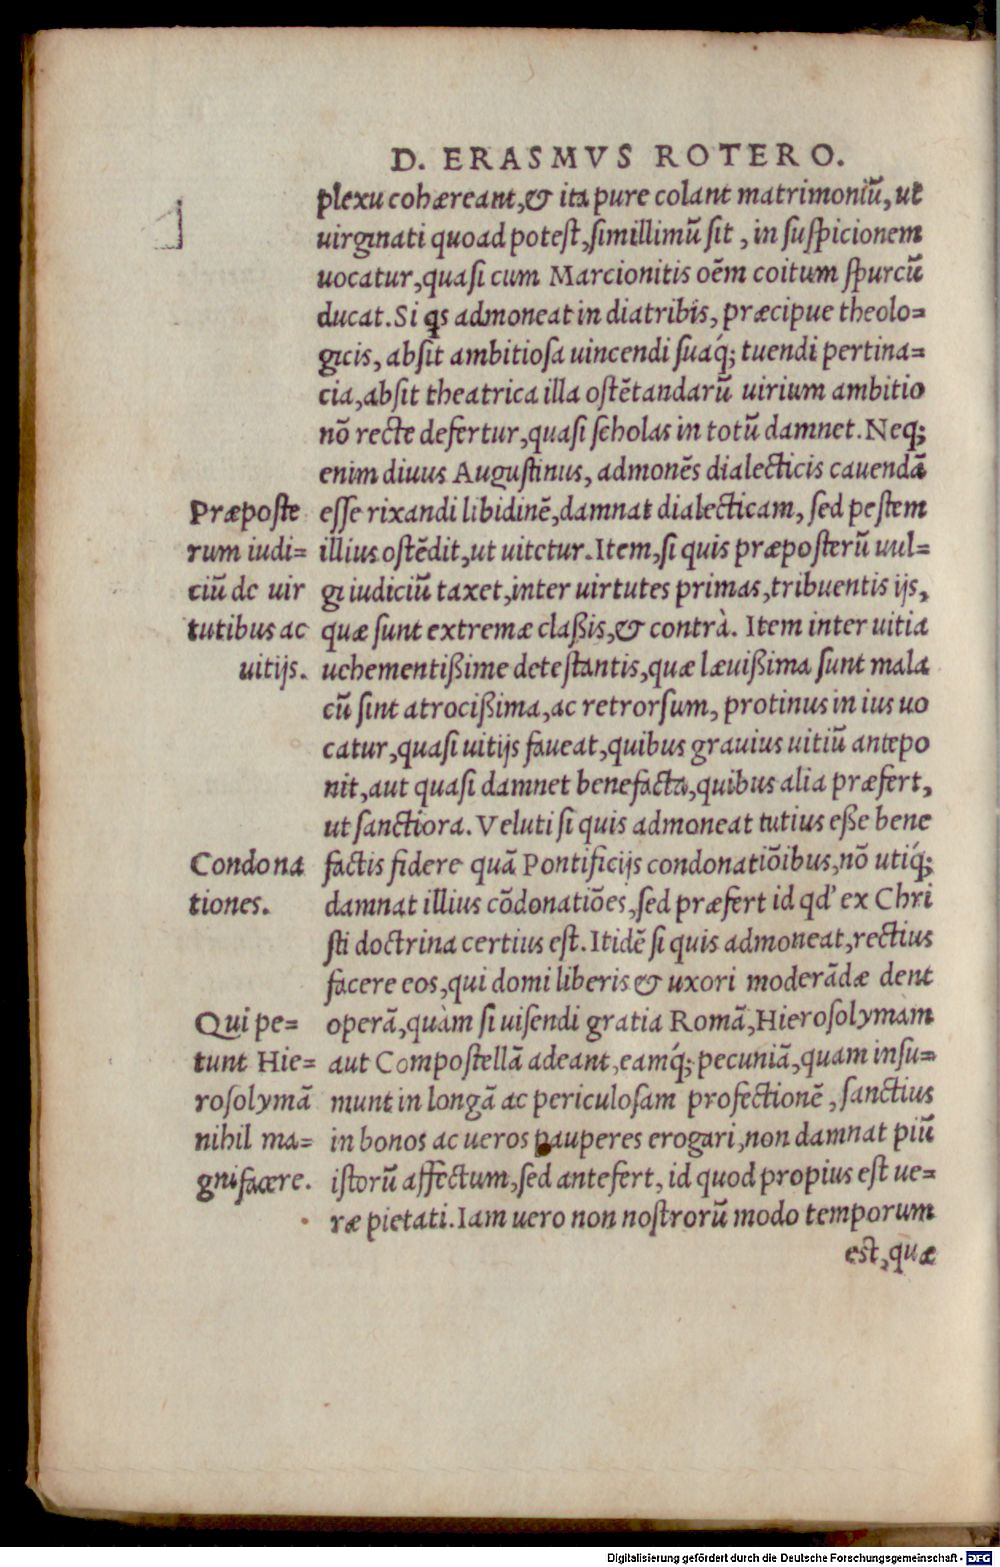 D. ERASMVS ROTERO.
plexu cohæreant,& ita pure colant matrimoniũ, ut
uirginati quoad potest, simillimũ sit, in suspicionem
uocatur, quasi cum Marcionitis oẽm coitum spurcũ
ducat. Si qs admoneat in diatribis, præcipue theolo=
gicis, absit ambitiosa uincendi suaq́; tuendi pertina=
cia, absit theatrica illa ostẽtandarũ uirium ambitio
nõ recte defertur, quasi scholas in totũ damnet. Neq;
enim diuus Augustinus, admonẽs dialecticis cauendã
esse rixandi libidinẽ, damnat dialecticam, sed pestem
illius ostẽdit, ut uitetur. Item, si quis præposterũ uul=
gi iudiciũ taxet, inter uirtutes primas, tribuentis ijs,
quæ sunt extremæ claßis,& contrà. Item inter uitia
uehementißime detestantis, quæ læuißima sunt mala
cũ sint atrocißima, ac retrorsum, protinus in ius uo
catur, quasi uitijs faueat, quibus grauius uitiũ antepo
nit, aut quasi damnet benefacta, quibus alia præfert,
ut sanctiora. Veluti si quis admoneat tutius eße bene
factis fidere quã Pontificijs condonatiõibus, nõ utiq́;
damnat illius cõdonatiões, sed præfert id qd' ex Chri
sti doctrina certius est. Itidẽ si quis admoneat, rectius
facere eos, qui domi liberis & uxori moderãdæ dent
operã, quàm si uisendi gratia Romã, Hierosolymam
aut Compostellã adeant, eamq́; pecuniã, quam insu=
munt in longã ac periculosam profectionẽ, sanctius
in bonos ac ueros pauperes erogari, non damnat piũ
istorũ affectum, sed antefert, id quod propius est ue=
ræ pietati. Iam uero non nostrorũ modo temporum
est, quæ
Præposte
rum iudi=
ciũ de uir
tutibus ac
uitijs.
Condona
tiones.
Qui pe=
tunt Hie=
rosolymã
nihil ma=
gni facere.
Digitalisierung gefördert durch die Deutsche Forschungsgemeinschaft - DFG